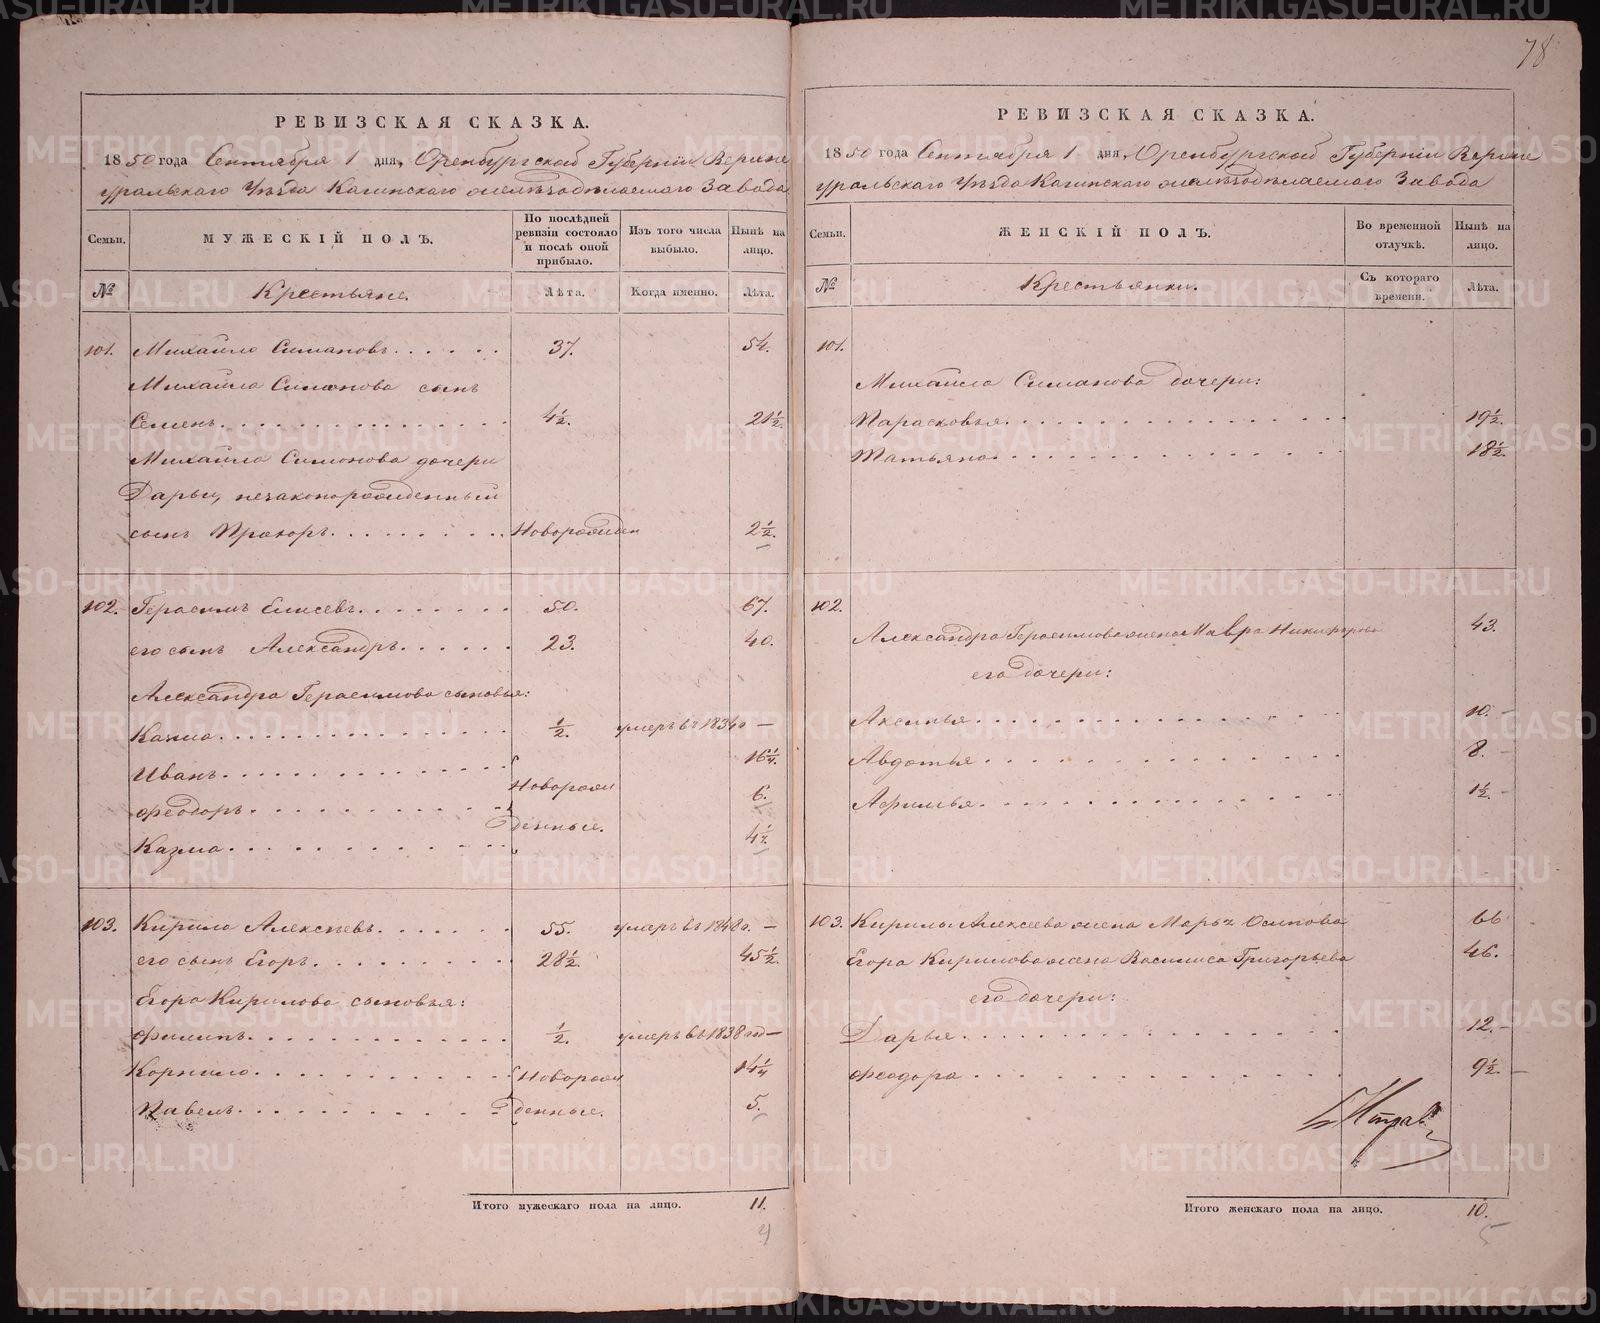 78
РЕВИЗСКАЯ СКАЗКА.
1850 года Сентября 1 дня, Оренбургской Губернiи Верхне
уральскаго Уѣзда Кагинскаго желѣзодѣлаемаго Завода
Семьи.
МУЖЕСКІЙ ПОЛЪ.
По послѣдней ревизіи состояло и послѣ оной прибыло.
Изъ того числа выбыло.
Нынѣ на лицо.
№ Крестьяне. Лѣта. Когда именно. Лѣта.
101. Михайло Симановъ 37. 54.
Михайла Симонова сынъ
Семенъ 4½. 21½.
Михайла Симонова дочери
Дарьи, незаконорожденный
сынъ Прохоръ Новорожден 2½.
102. Герасимъ Елисевъ 50. 67.
его сынъ Александръ 23. 40.
Александра Герасимова сыновья:
Казма ½. умеръ въ 1834 г —
Иванъ 16¼.
Новорож
Феодоръ 6.
денные.
Казма 4¼.
103. Кирило Алексѣевъ 55. умеръ въ 1848 г. —
его сынъ Егоръ 28½. 45½.
Егора Кирилова сыновья:
Филипъ ½. умеръ въ 1838 год —
Корнило Новорож 14¼
Павелъ денные. 5.
Итого мужескаго пола на лицо. 11.
4
РЕВИЗСКАЯ СКАЗКА.
1850 года Сентября 1 дня, Оренбургской Губернiи Верхне
уральскаго Уѣзда Кагинскаго желѣзодѣлаемаго Завода
Семьи.
ЖЕНСКІЙ ПОЛЪ.
Во временной отлучкѣ.
Нынѣ на лицо.
№ Крестьянки. Съ котораго времени. Лѣта.
101.
Михайла Симанова дочери:
Парасковья 19½.
Татьяна 18½.
102.
Александра Герасимова жена Мавра Никифорова 43.
его дочери:
Аксинья 10. —
Авдотья 8. —
Афимья 1½. —
103. Кирилы Алексеева жена Марья Осипова 66
Егора Кирилова жена Василиса Григорьева 46.
его дочери:
Дарья 12. —
Феодора 9½. —
Итого женскаго пола на лицо. 10.
5
METRIKI.GASO-URAL.RU